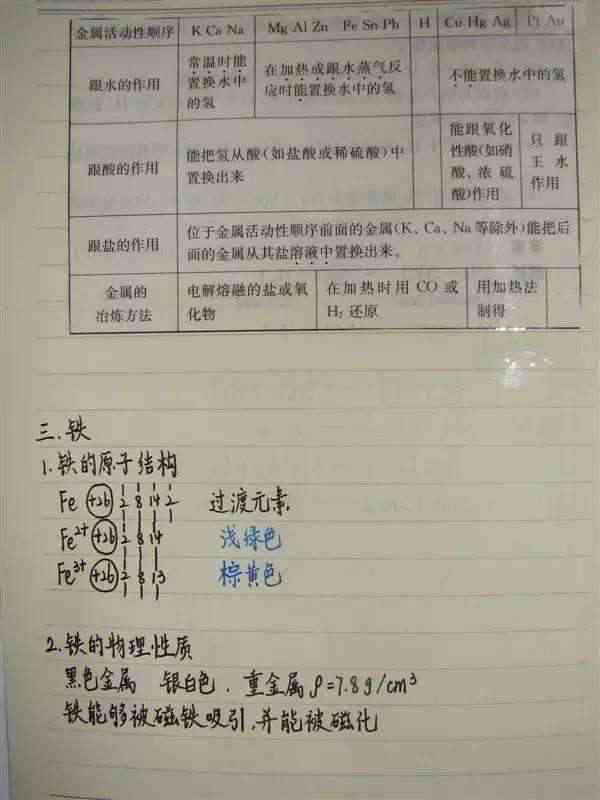 金属活动性顺序 K Ca Na Mg Al Zn Fe Sn Pb H Cu Hg Ag Pt Au
跟水的作用
常温时能
置换水中
的氢
在加热或跟水蒸气反
应时能置换水中的氢
不能置换水中的氢
跟酸的作用
能把氢从酸(如盐酸或稀硫酸)中
置换出来
能跟氧化
性酸(如硝
酸、浓硫
酸)作用
只跟
王水
作用
跟盐的作用
位于金属活动性顺序前面的金属(K、Ca、Na等除外)能把后
面的金属从其盐溶液中置换出来。
金属的
冶炼方法
电解熔融的盐或氧
化物
在加热时用 CO 或
H₂ 还原
用加热法
制得
三.铁
1.铁的原子结构
Fe +26 2 8 14 2 过渡元素
Fe²⁺ +26 2 8 14 浅绿色
Fe³⁺ +26 2 8 13 棕黄色
2.铁的物理性质
黑色金属 银白色. 重金属 ρ=7.8g/cm³
铁能够被磁铁吸引,并能被磁化